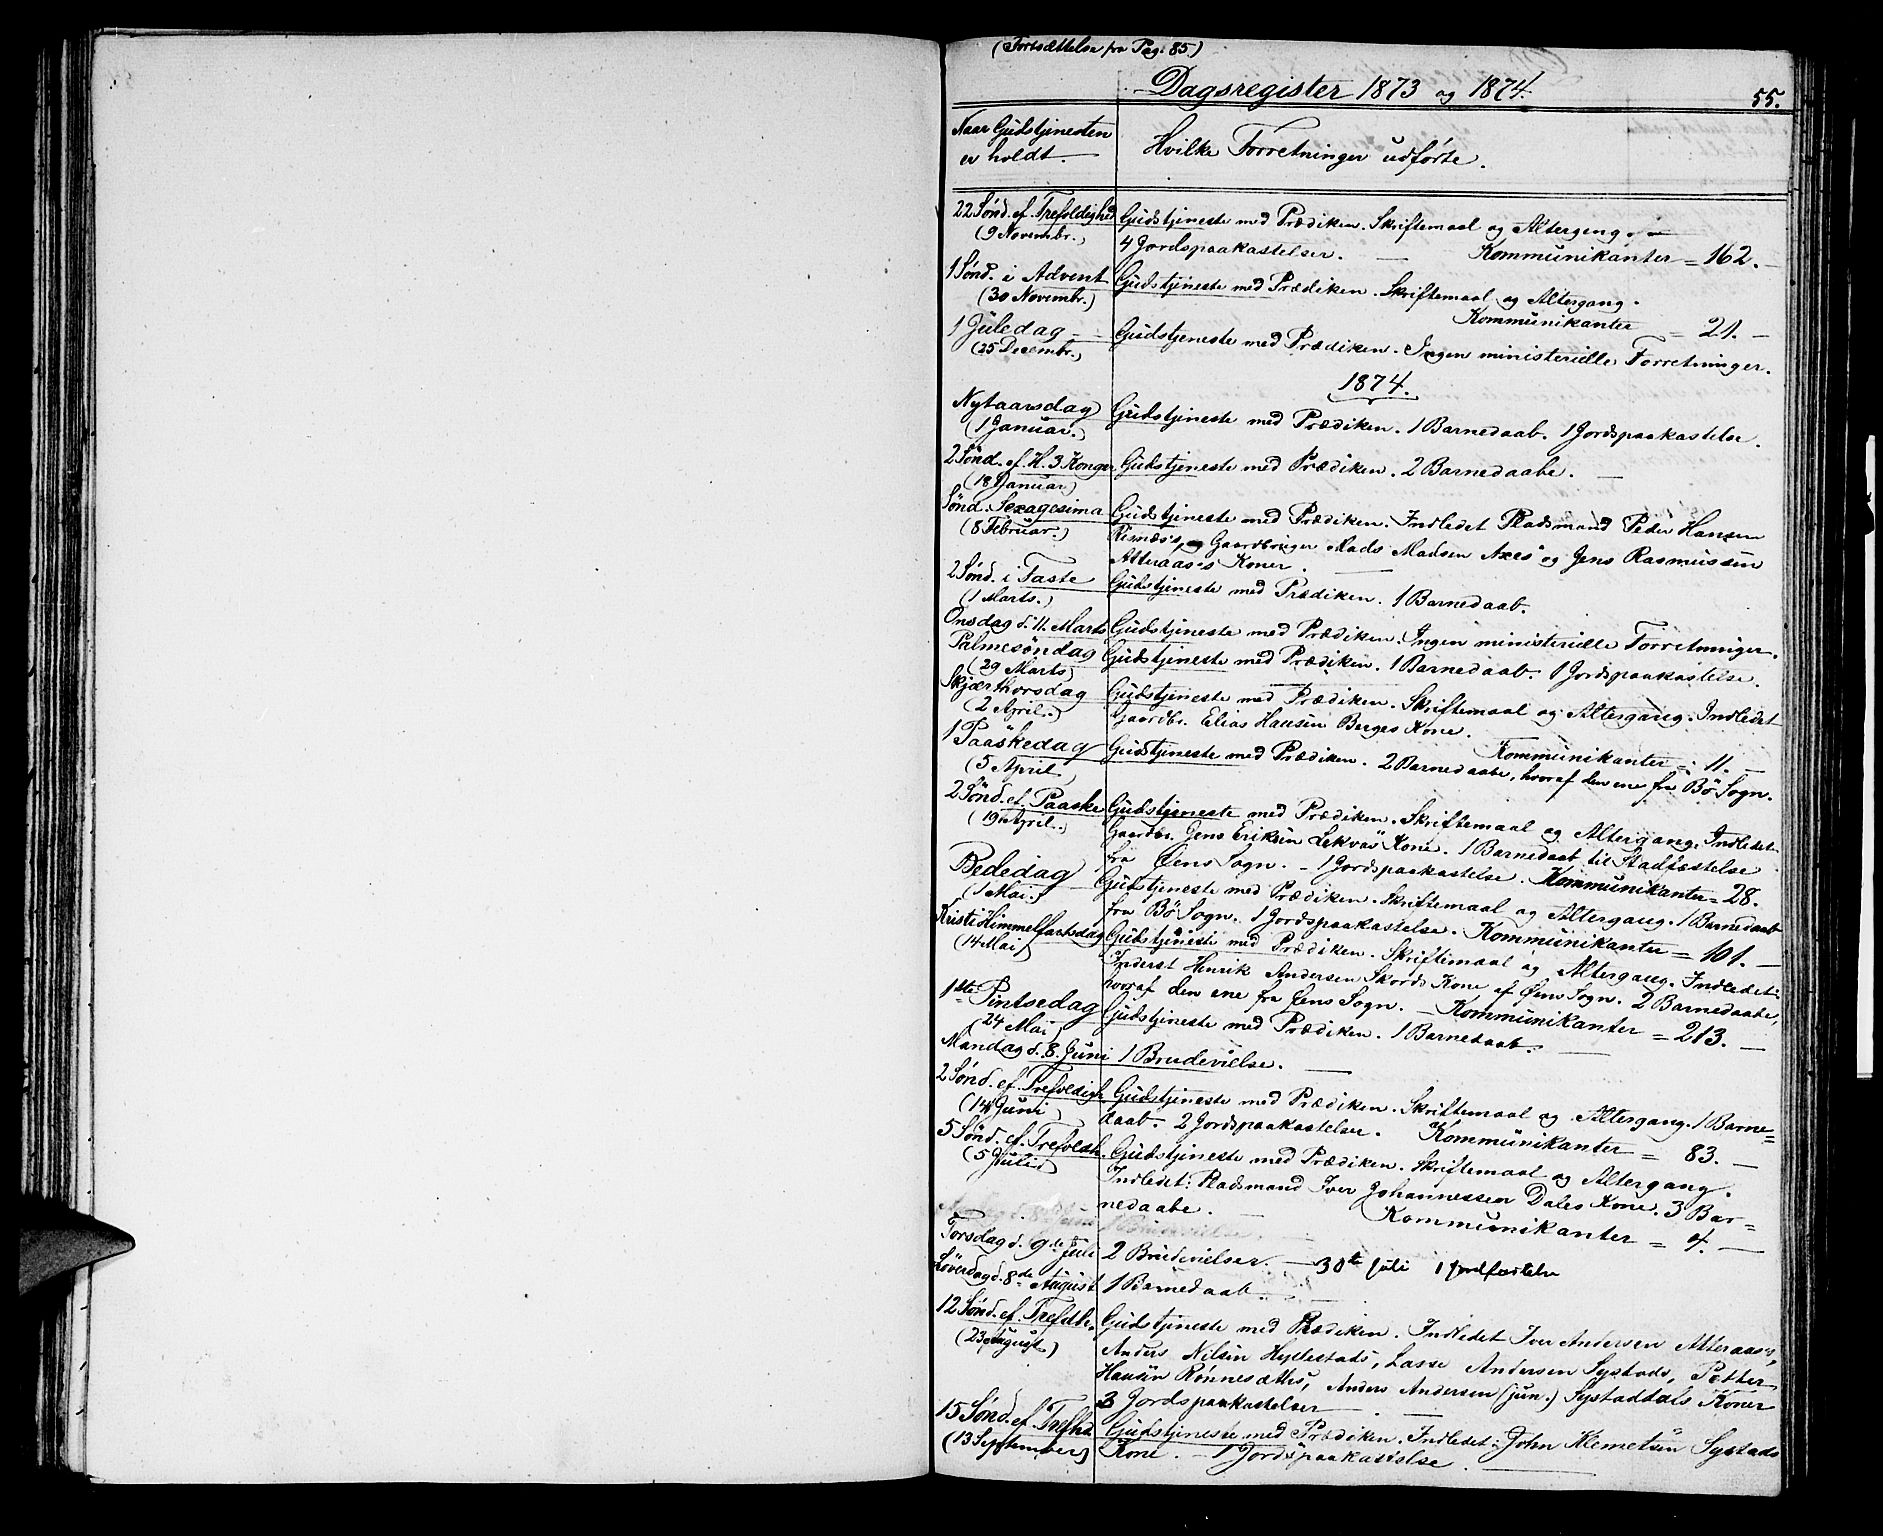 (Fortsættelse fra Pag. 85)
Dagsregister 1873 og 1874.
55.
Naar Gudstjenesten
er holdt.
Hvilke Forretninger udførte.
22 Sönd. ef. Trefoldighed Gudstjeneste med Prædiken. Skriftemaal og Altergang. -
(9 Novembr.) 4 Jordspaakastelser. - Kommunikanter = 162. -
1 Sönd. i Advent Gudstjeneste med Prædiken. Skriftemaal og Altergang.
(30 Novembr.) Kommunikanter = 21. -
1 Juledag - Gudstjeneste med Prædiken. Ingen ministerielle Forretninger.
(25 Decembr.)
1874.
Nytaarsdag Gudstjeneste med Prædiken. 1 Barnedaab. 1 Jordspaakastelse.
(1 Januar.)
2 Sönd. ef. H. 3 Konger Gudstjeneste med Prædiken. 2 Barnedaabe. -
(18 Januar)
Sönd. Sexagesima Gudstjeneste med Prædiken. Indledet Pladsmand Peder Hansen
(8 Februar.) Risnæs's, og Gaardbruger Mads Madsen Axes og Jens Rasmussen
Atteraas's Koner. -
2 Sönd. i Faste Gudstjeneste med Prædiken. 1 Barnedaab.
(1 Marts.)
Onsdag d. 11. Marts Gudstjeneste med Prædiken. Ingen ministerielle Forretninger.
Palmesöndag Gudstjeneste med Prædiken. 1 Barnedaab. 1 Jordspaakastelse.
(29 Marts)
Skjærthorsdag Gudstjeneste med Prædiken. Skriftemaal og Altergang. Indledet
(2 April.) Gaardbr. Elias Hansen Berges Kone.
Kommunikanter = 11. -
1 Paaskedag Gudstjeneste med Prædiken. 2 Barnedaabe, hvoraf den ene fra Bö Sogn.
(5 April
2 Sönd. ef. Paaske Gudstjeneste med Prædiken. Skriftemaal og Altergang. Indledet
(19 April.) Gaardbr. Jens Eriksen Lekvas Kone. 1 Barnedaab til Stadfæstelse
fra Øens Sogn. - 1 Jordspaakastelse. Kommunikanter = 28.
Bededag Gudstjeneste med Prædiken. Skriftemaal og Altergang. 1 Barnedaab
(1 Mai.) fra Bö Sogn. 1 Jordspaakastelse. Kommunikanter = 101. -
Kristi Himmelfartsdag Gudstjeneste med Prædiken. Skriftemaal og Altergang. Indledet:
(14 Mai) Inderst Henrik Andersen Skords Kone af Øens Sogn. 2 Barnedaabe,
hvoraf den ene fra Øens Sogn. - Kommunikanter = 213. -
1ste Pintsedag Gudstjeneste med Prædiken. 1 Barnedaab. -
(24 Mai
Mandag d. 8. Juni 1 Brudevielse. -
2 Sönd. ef. Trefoldigh. Gudstjeneste med Prædiken. Skriftemaal og Altergang. 1 Barne=
(14 Juni) daab. - 2 Jordspaakastelser. Kommunikanter = 83. -
5 Sönd. ef. Trefoldh. Gudstjeneste med Prædiken. Skriftemaal og Altergang.
(5 Juli) Indledet: Pladsmand Iver Johannessen Dales Kone. 3 Bar=
nedaabe. - Kommunikanter = 9. -
Torsdag d. 9de Juli 2 Brudevielser. - 30te Juli 1 Jordfæstelse
Löverdag d. 8de August 1 Barnedaab. -
12 Sönd. ef. Trefdh. Gudstjeneste med Prædiken. Indledet Iver Andersen Atteraas's,
(23 August) Anders Nilsen Hyllestads, Lasse Andersen Systads, Petter
Hansen Rönnesætts, Anders Andersen (jun.) Systaddals Koner
3 Jordspaakastelser -
15 Sönd. ef. Trefhd. Gudstjeneste med Prædiken. Indledet: John Klemetsen Systads
(13 September) Kone. - 1 Jordspaakastelse. -